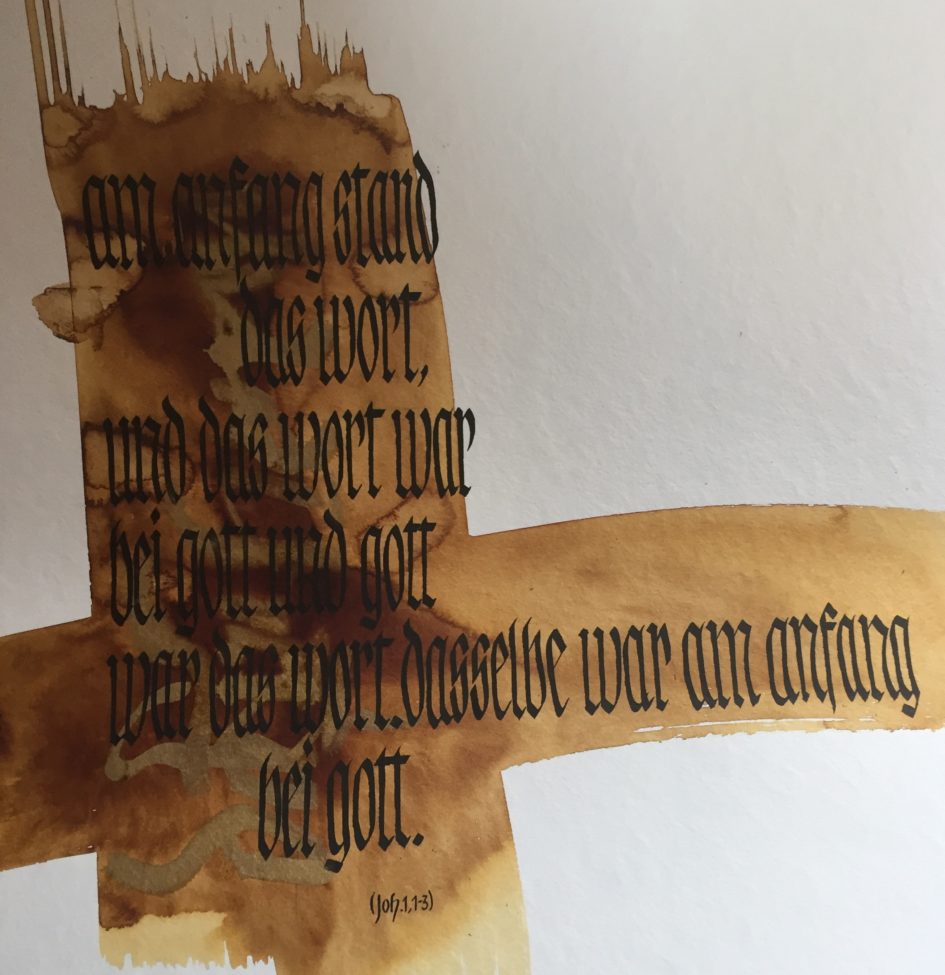 am anfang stand
das wort,
und das wort war
bei gott und gott
war das wort. dasselbe war am anfang
bei gott.
(Joh.1,1-3)